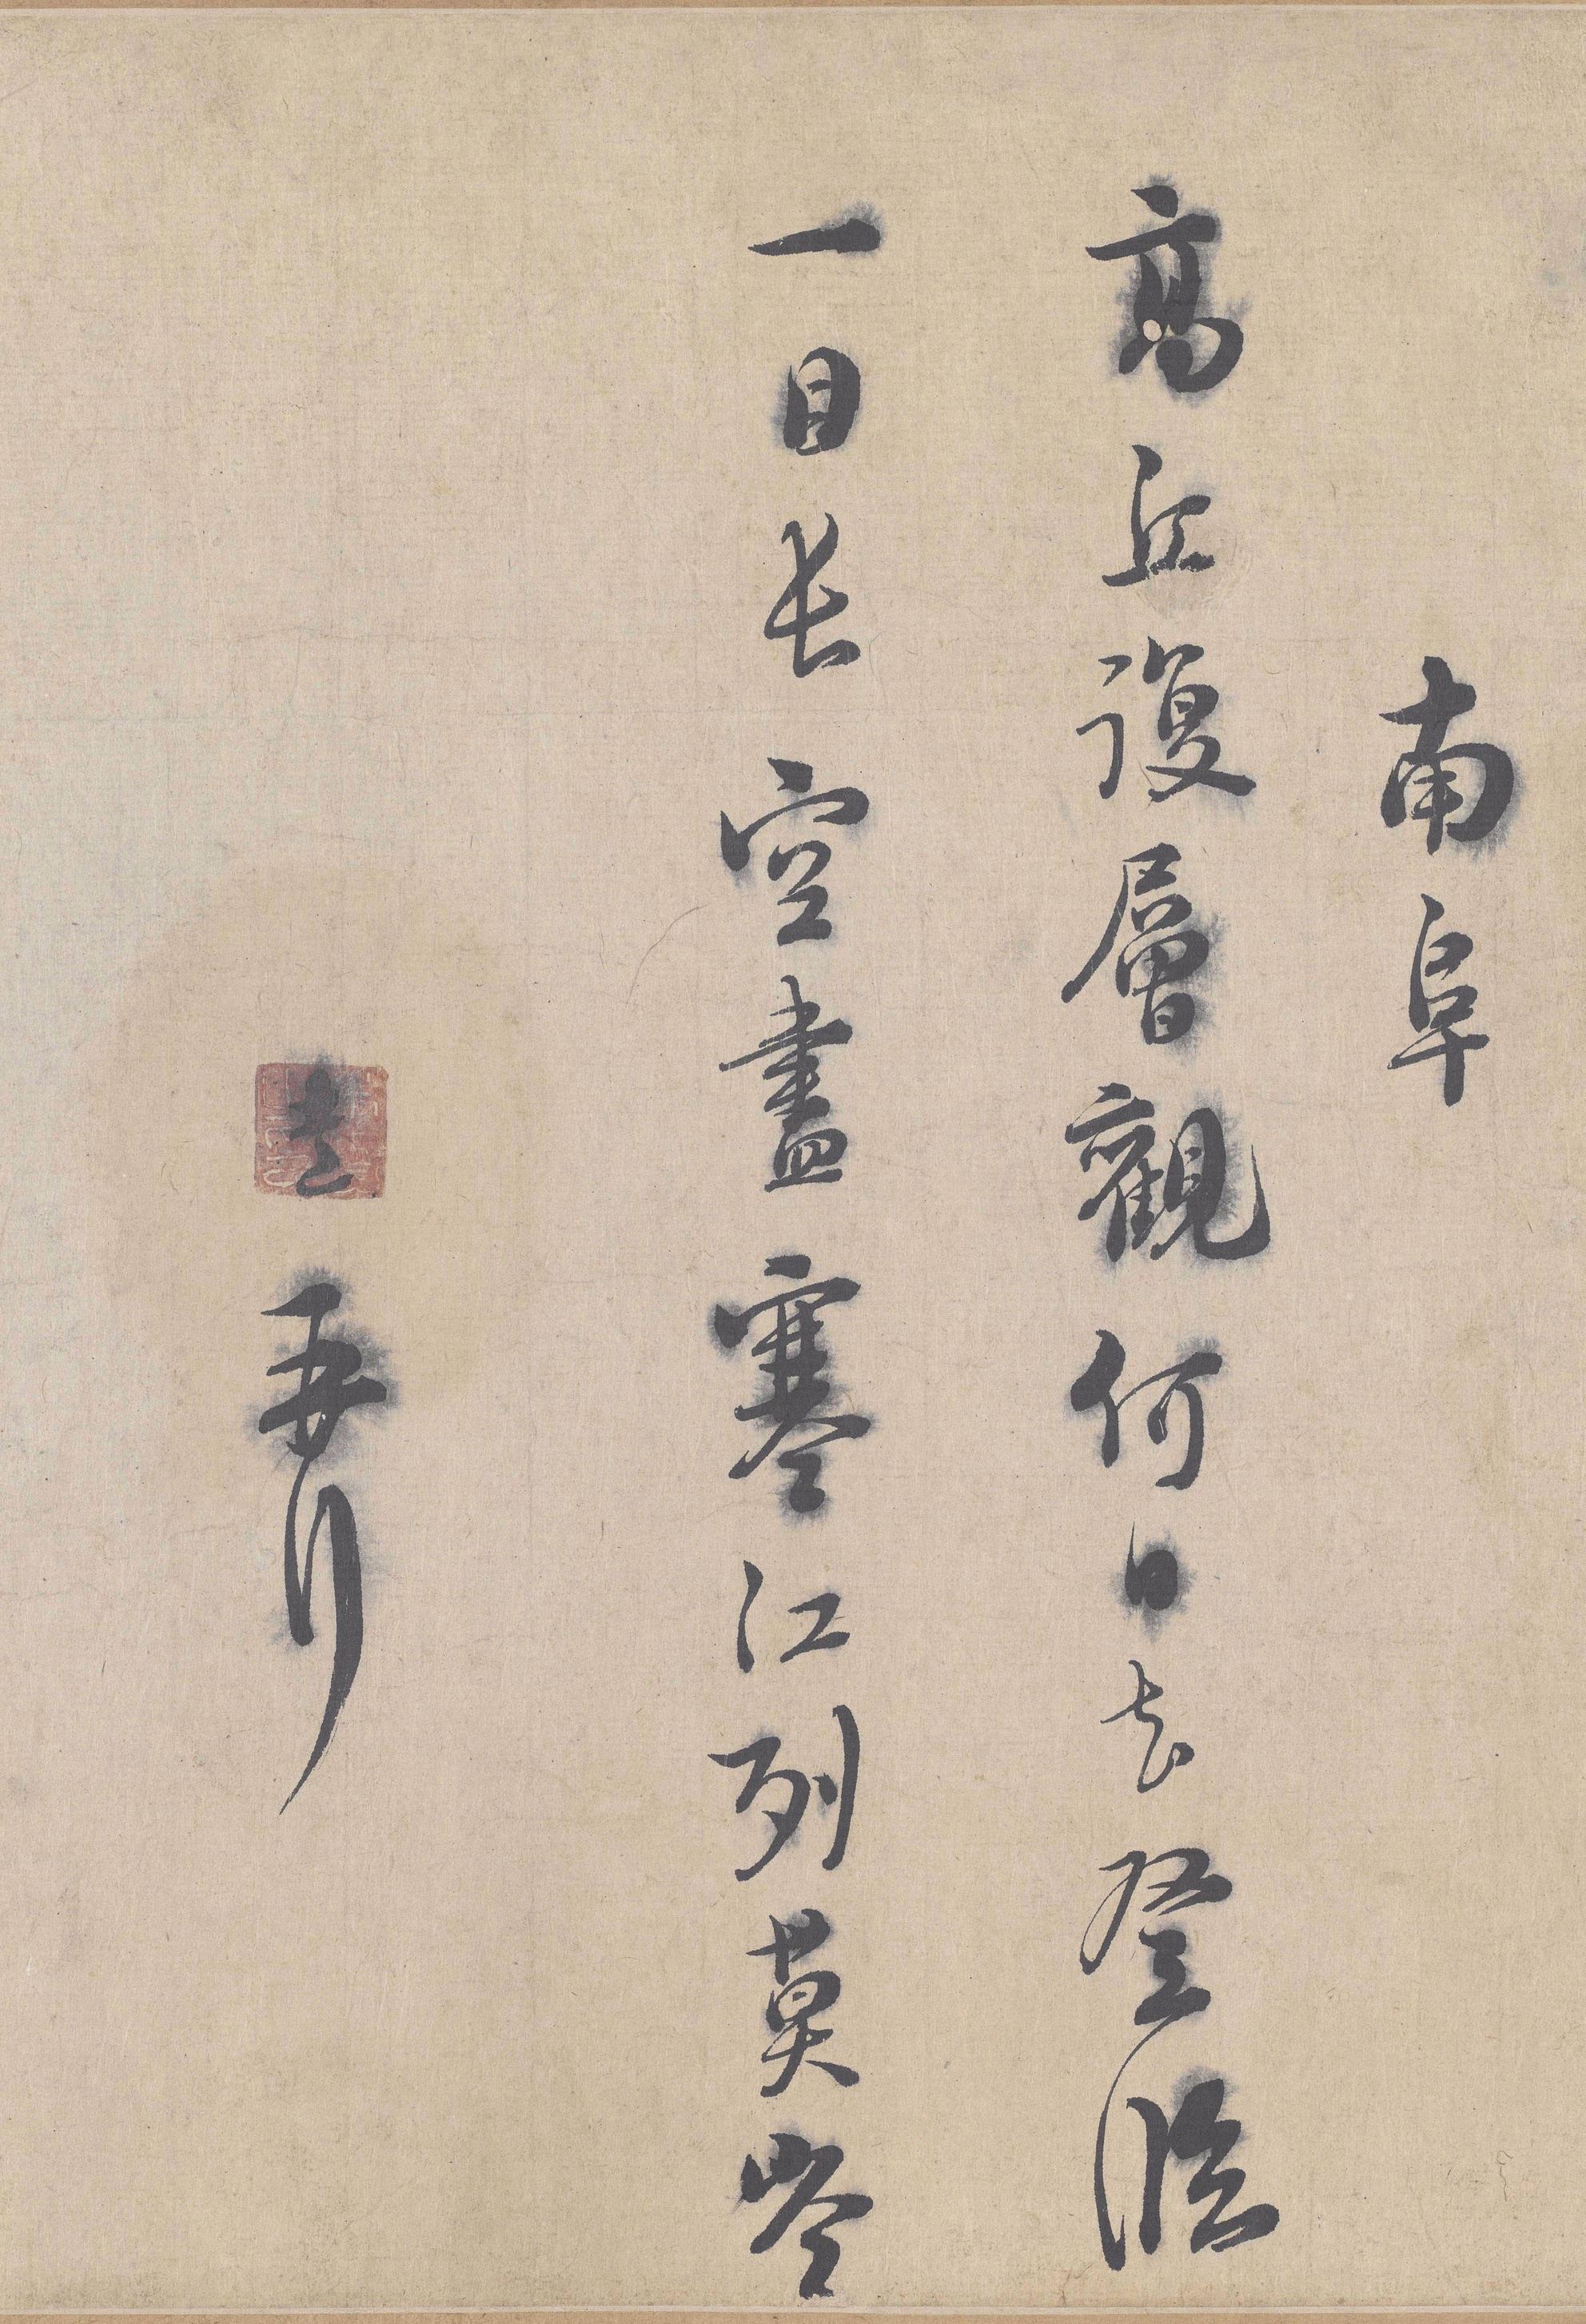 南阜
高丘復層觀何日去登臨
一目長空盡寒江列莫岑
熹再拜